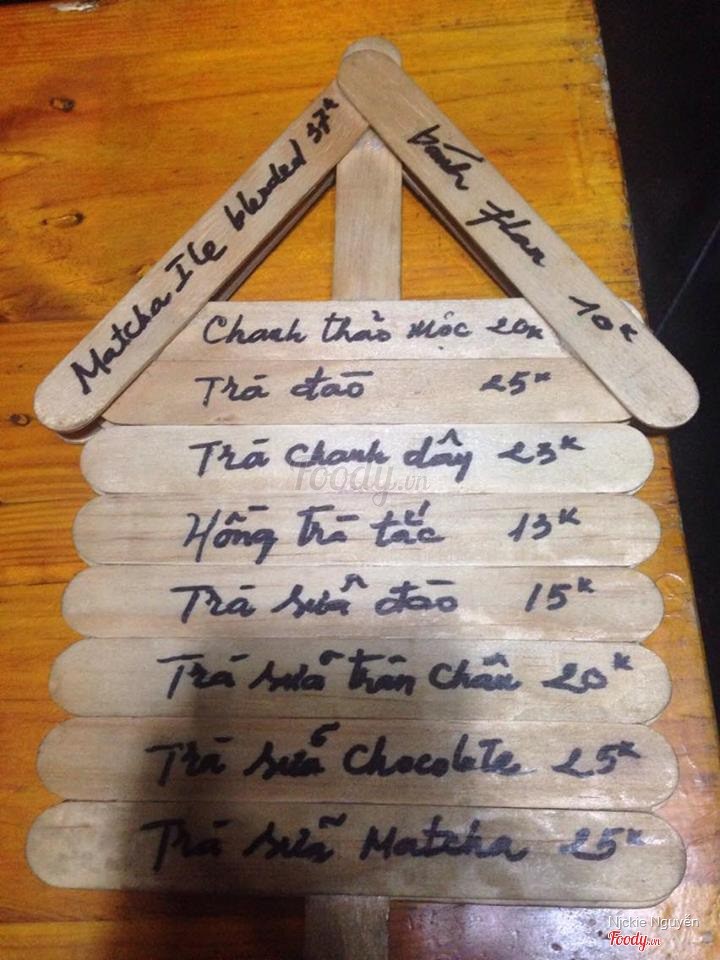 Matcha Ice blended 37k
bánh flan 10k
Chanh thảo mộc 20k
Trà đào 25k
Trà Chanh dây 23k
Hồng trà tắc 13k
Trà sữa đào 15k
Trà sữa trân Châu 20k
Trà sữa Chocolate 25k
Trà sữa Matcha 25k
Foody.vn
Nickie Nguyễn
Foody.vn